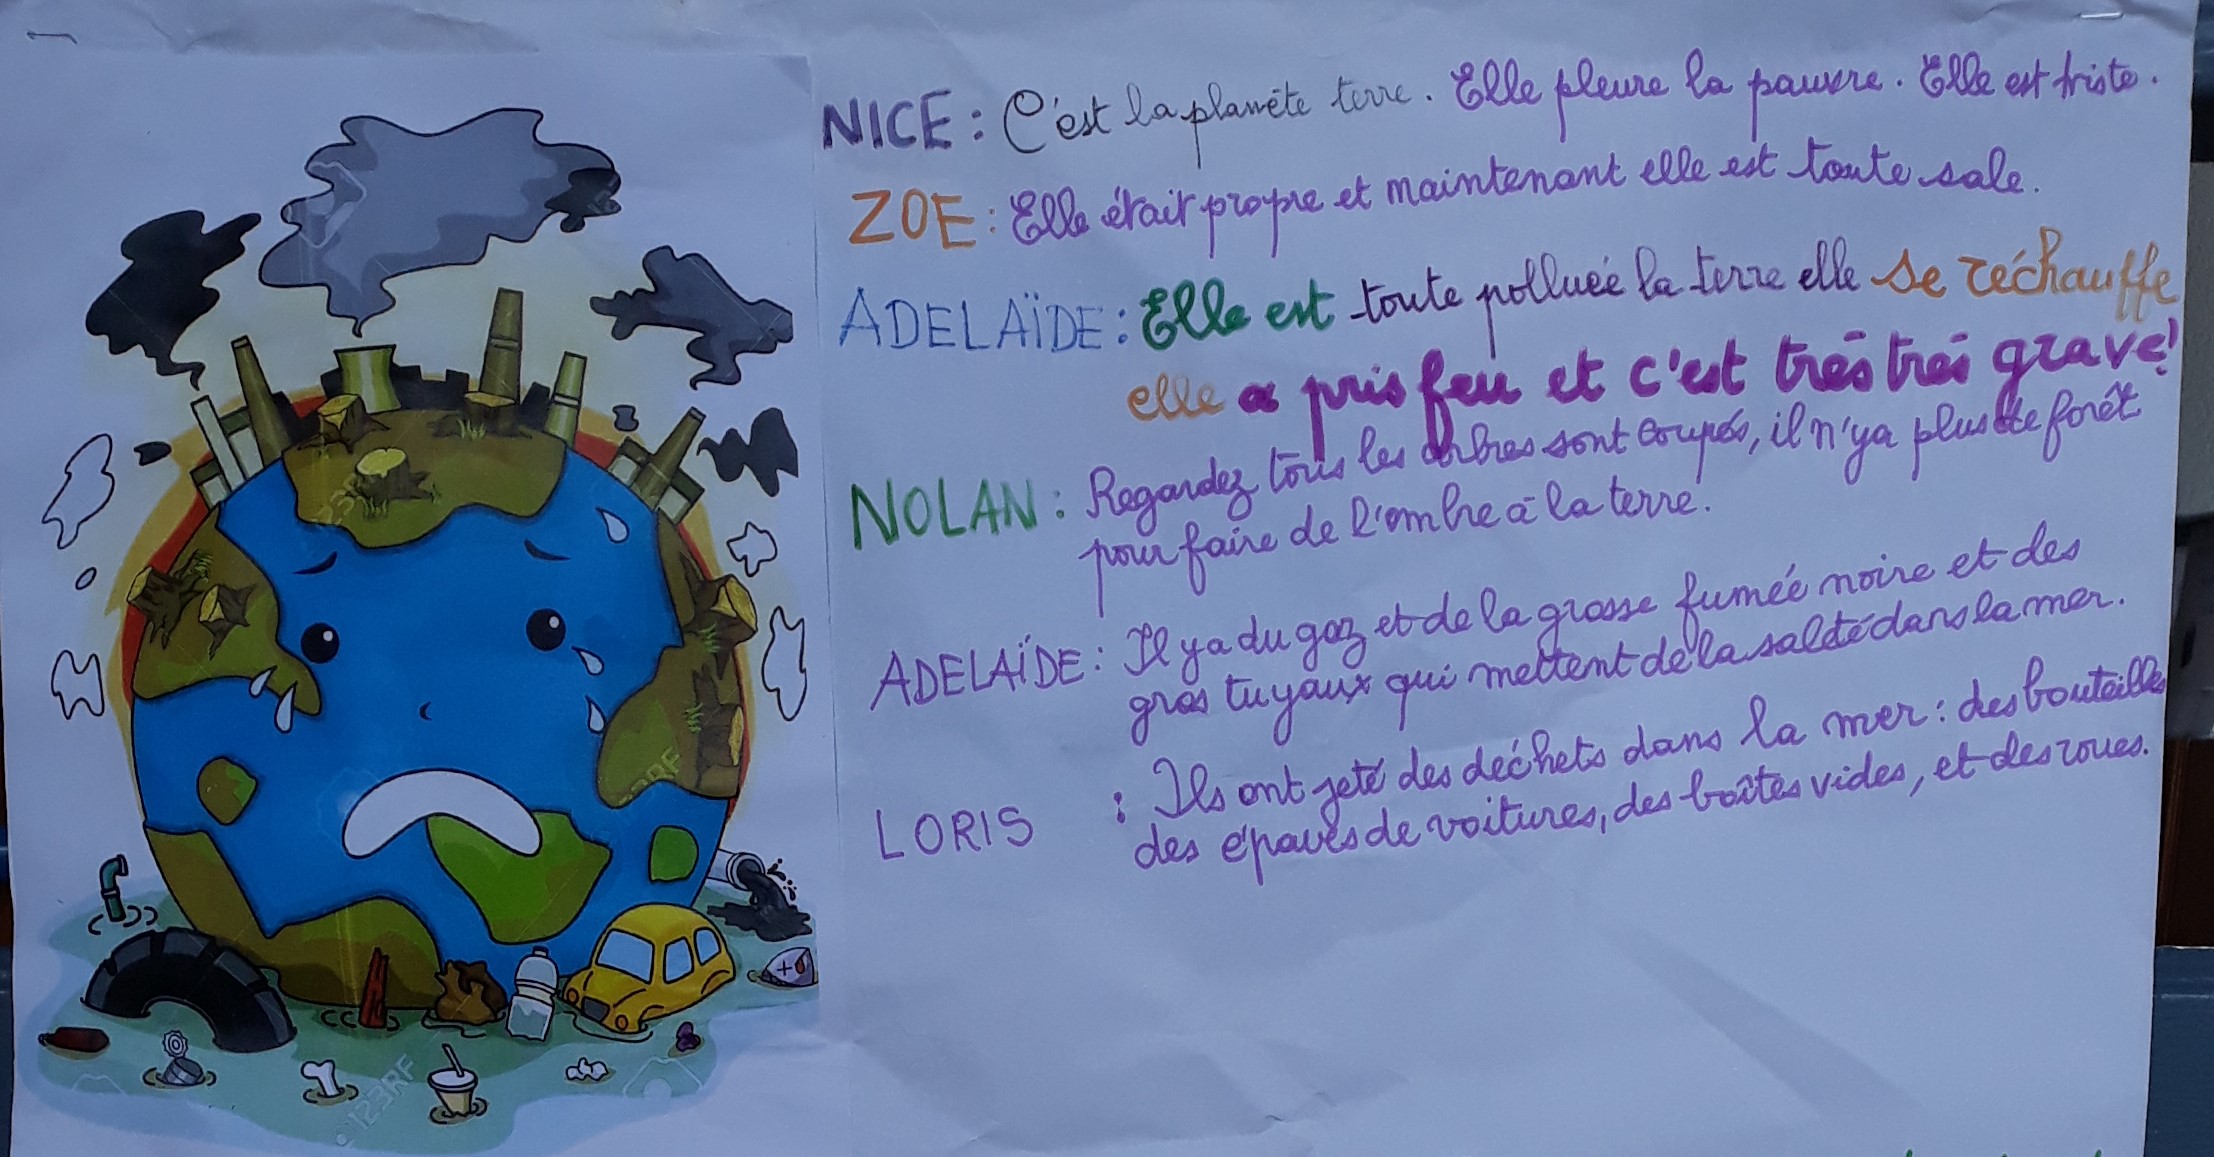 NICE : C'est la planète terre. Elle pleure la pauvre. Elle est triste.
ZOE : Elle était propre et maintenant elle est toute sale.
ADELAÏDE : Elle est toute polluée la terre elle se réchauffe
elle a pris feu et c'est très très grave!
NOLAN : Regardez tous les arbres sont coupés, il n'ya plus de forêt
pour faire de l'ombre à la terre.
ADELAÏDE : Il ya du gaz et de la grosse fumée noire et des
gros tuyaux qui mettent de la saleté dans la mer.
LORIS : Ils ont jeté des déchets dans la mer : des bouteilles
des épaves de voitures, des boîtes vides, et des roues.
123RF
123RF
123RF